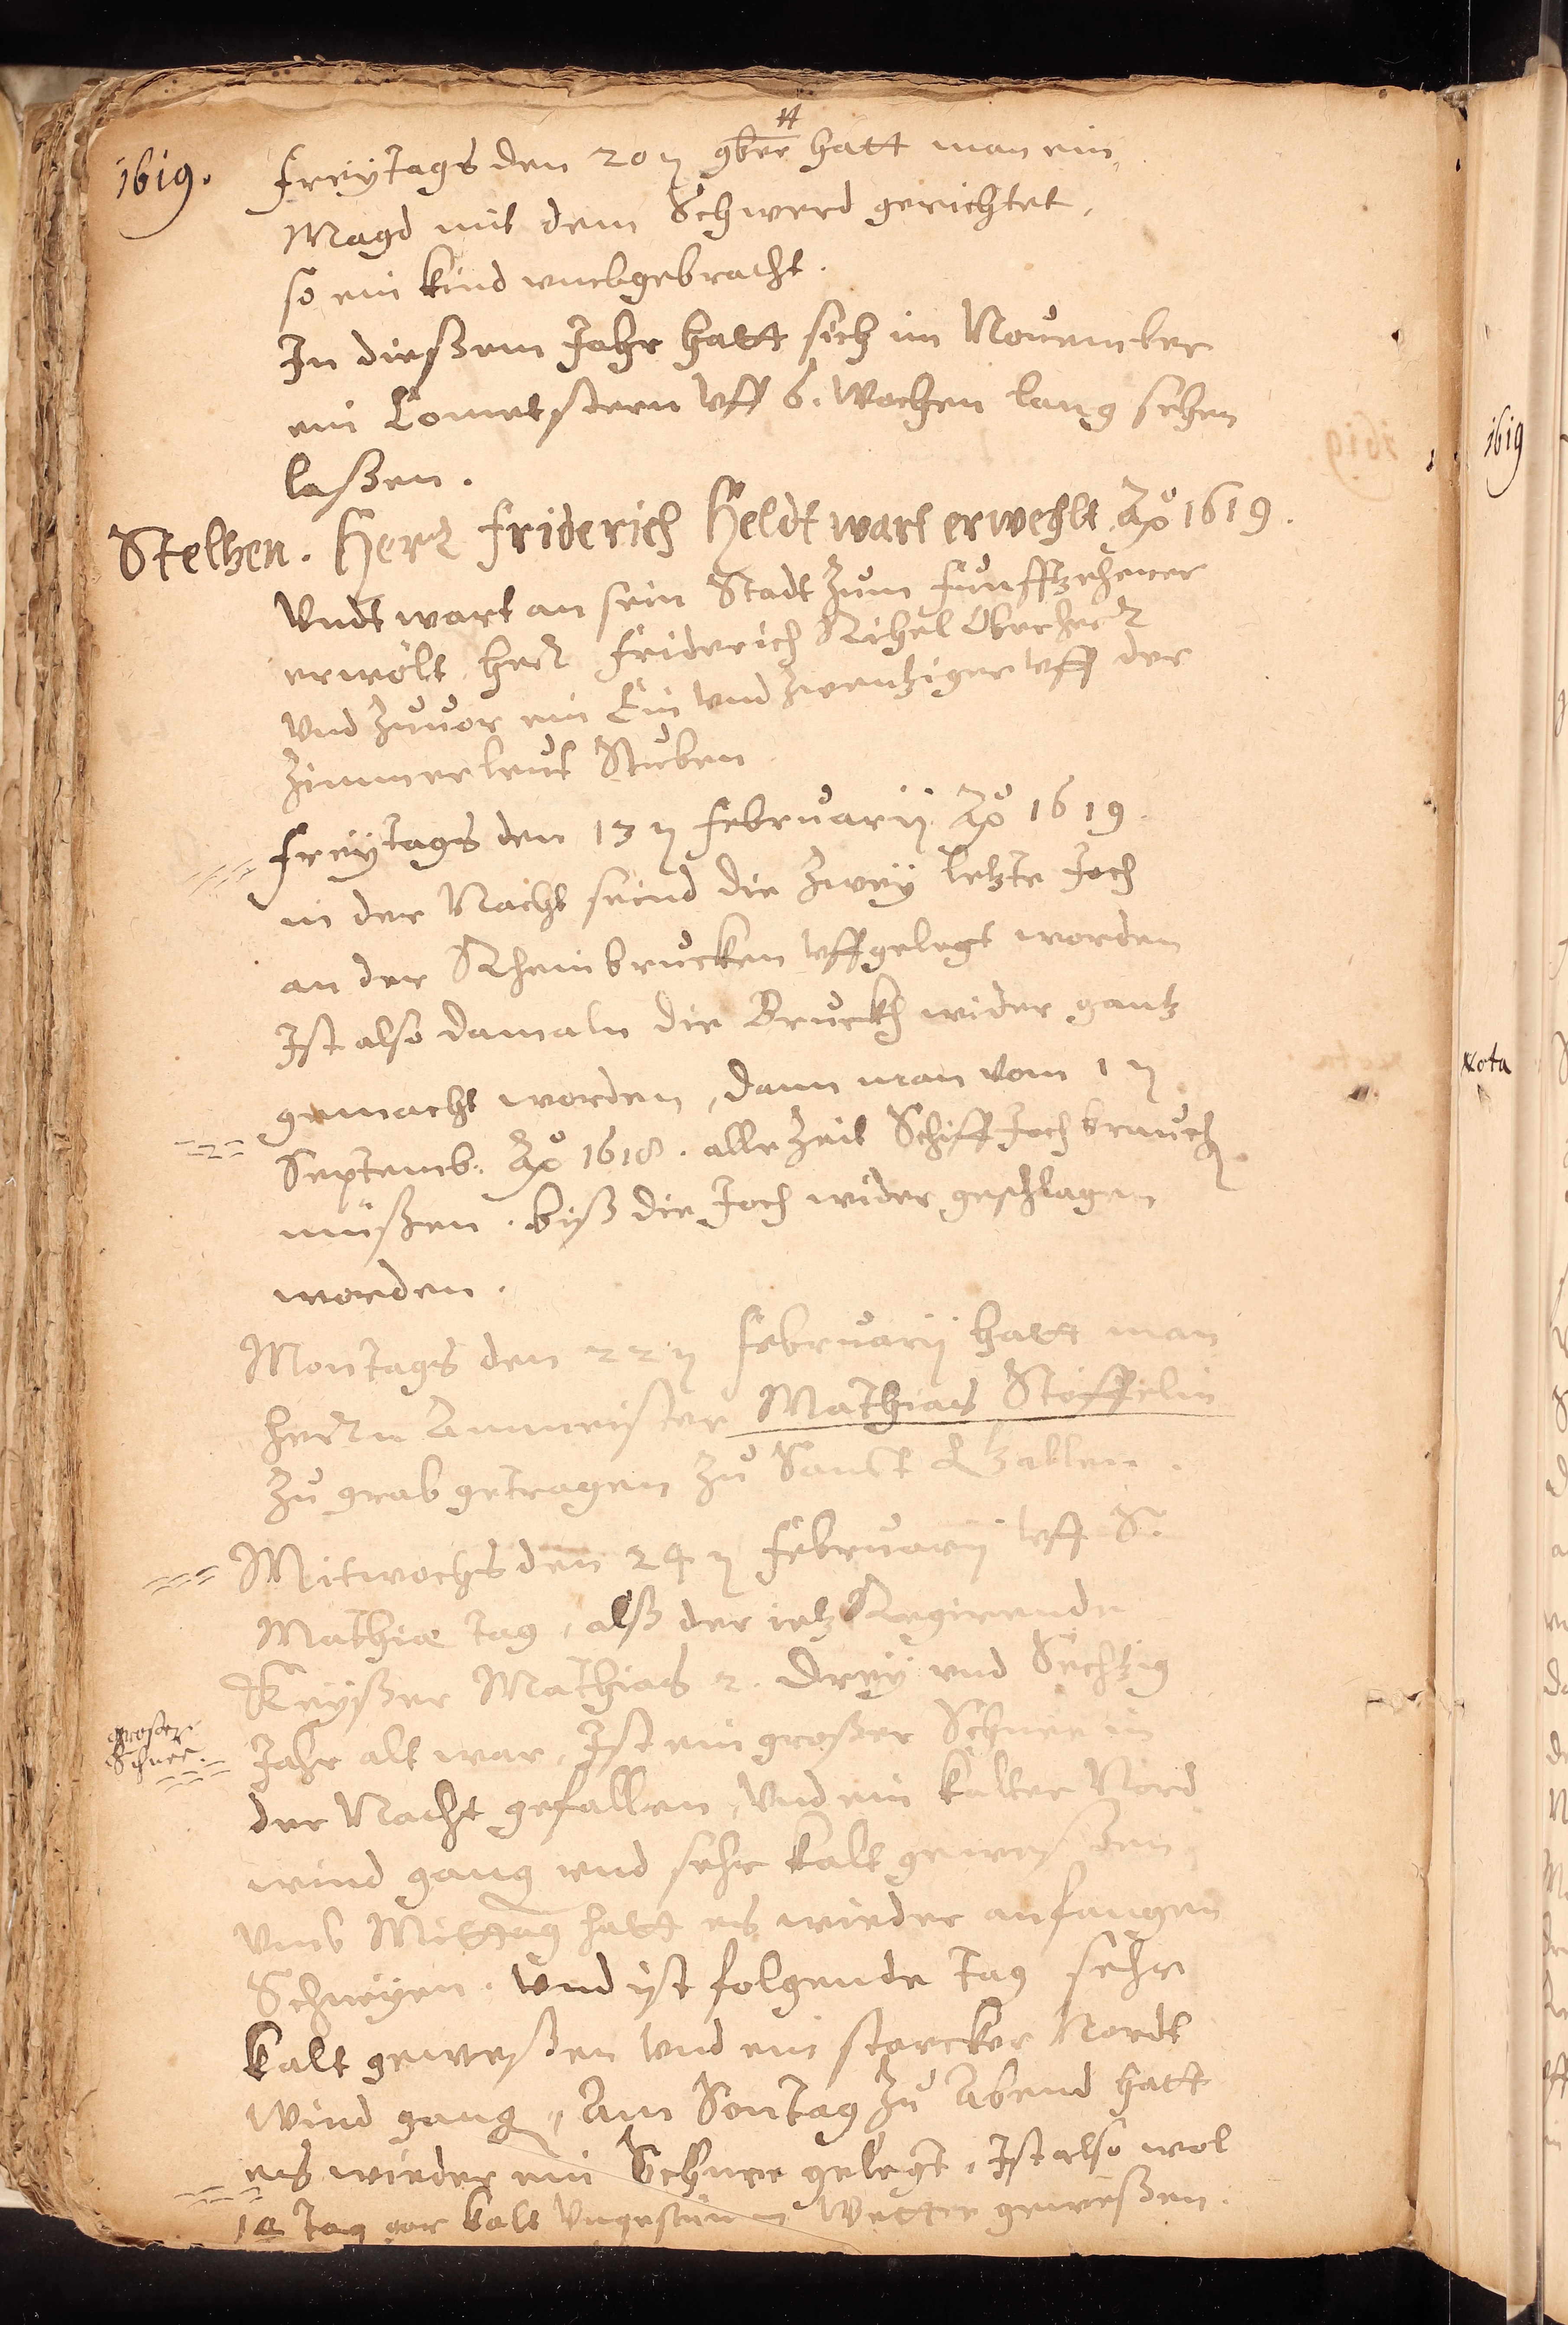 1619.
Freÿtags den 20 n 9ber hatt man ein
Magd mit dem Schwerd gerichtet,
so ein kind vmbgebracht.
In dießem Jahr hatt sich im November
ein Cometstern vff 6. Wochen lang sehen
laßen.
Stelhen. Herr Friderich Heldt wart erwehlt Aō 1619.
Vndt wart an sein Stadt Zum funfftzehener
erwölt herr Friderich Rihel Oberherr
Vnd Zuuor ein Ein Vnd Zwentziger vff der
Zimmerleut Stuben
Freÿtags den 13 n Februarij Aō 1619.
in der Nacht seind die Zweÿ letzte Joch
an der Rheinbrucken vffgelegt worden
Ist also damaln die Bruckh wider gantz
gemacht worden, dann man vom 1 n
Septemb. Aō 1618. alle Zeit Schiff Joch brauch
müßen. biß die Joch wider geschlagen
worden.
Montags den 22 n Februarij hatt man
herrn Ammeister Mathias Stöffelin
Zu grab getragen Zu Sanct Gallen.
Mitwochs den 24 n Februarij vff S.
Mathiæ tag, alß der ietz Regirende
Keÿßer Mathias 2. Dreÿ vnd Sechtzig
großer
Schnee.
Jahr alt war, Ist ein großer Schnee in
der Nacht gefallen, Vnd ein kalter Nord
wind gang vnd sehr kalt geweßen,
Vmb Mittag hatt es wieder anfangen
Schneÿen. Vnd ist folgende tag sehr
kalt geweßen Vnd ein starcker Nordt
Wind gang, Am Sontag Zu Abend hatt
es wieder ein Schnee gelegt, Ist also wol
14 Tag gar kalt Vngestüm Wetter geweßen.
1619
Nota